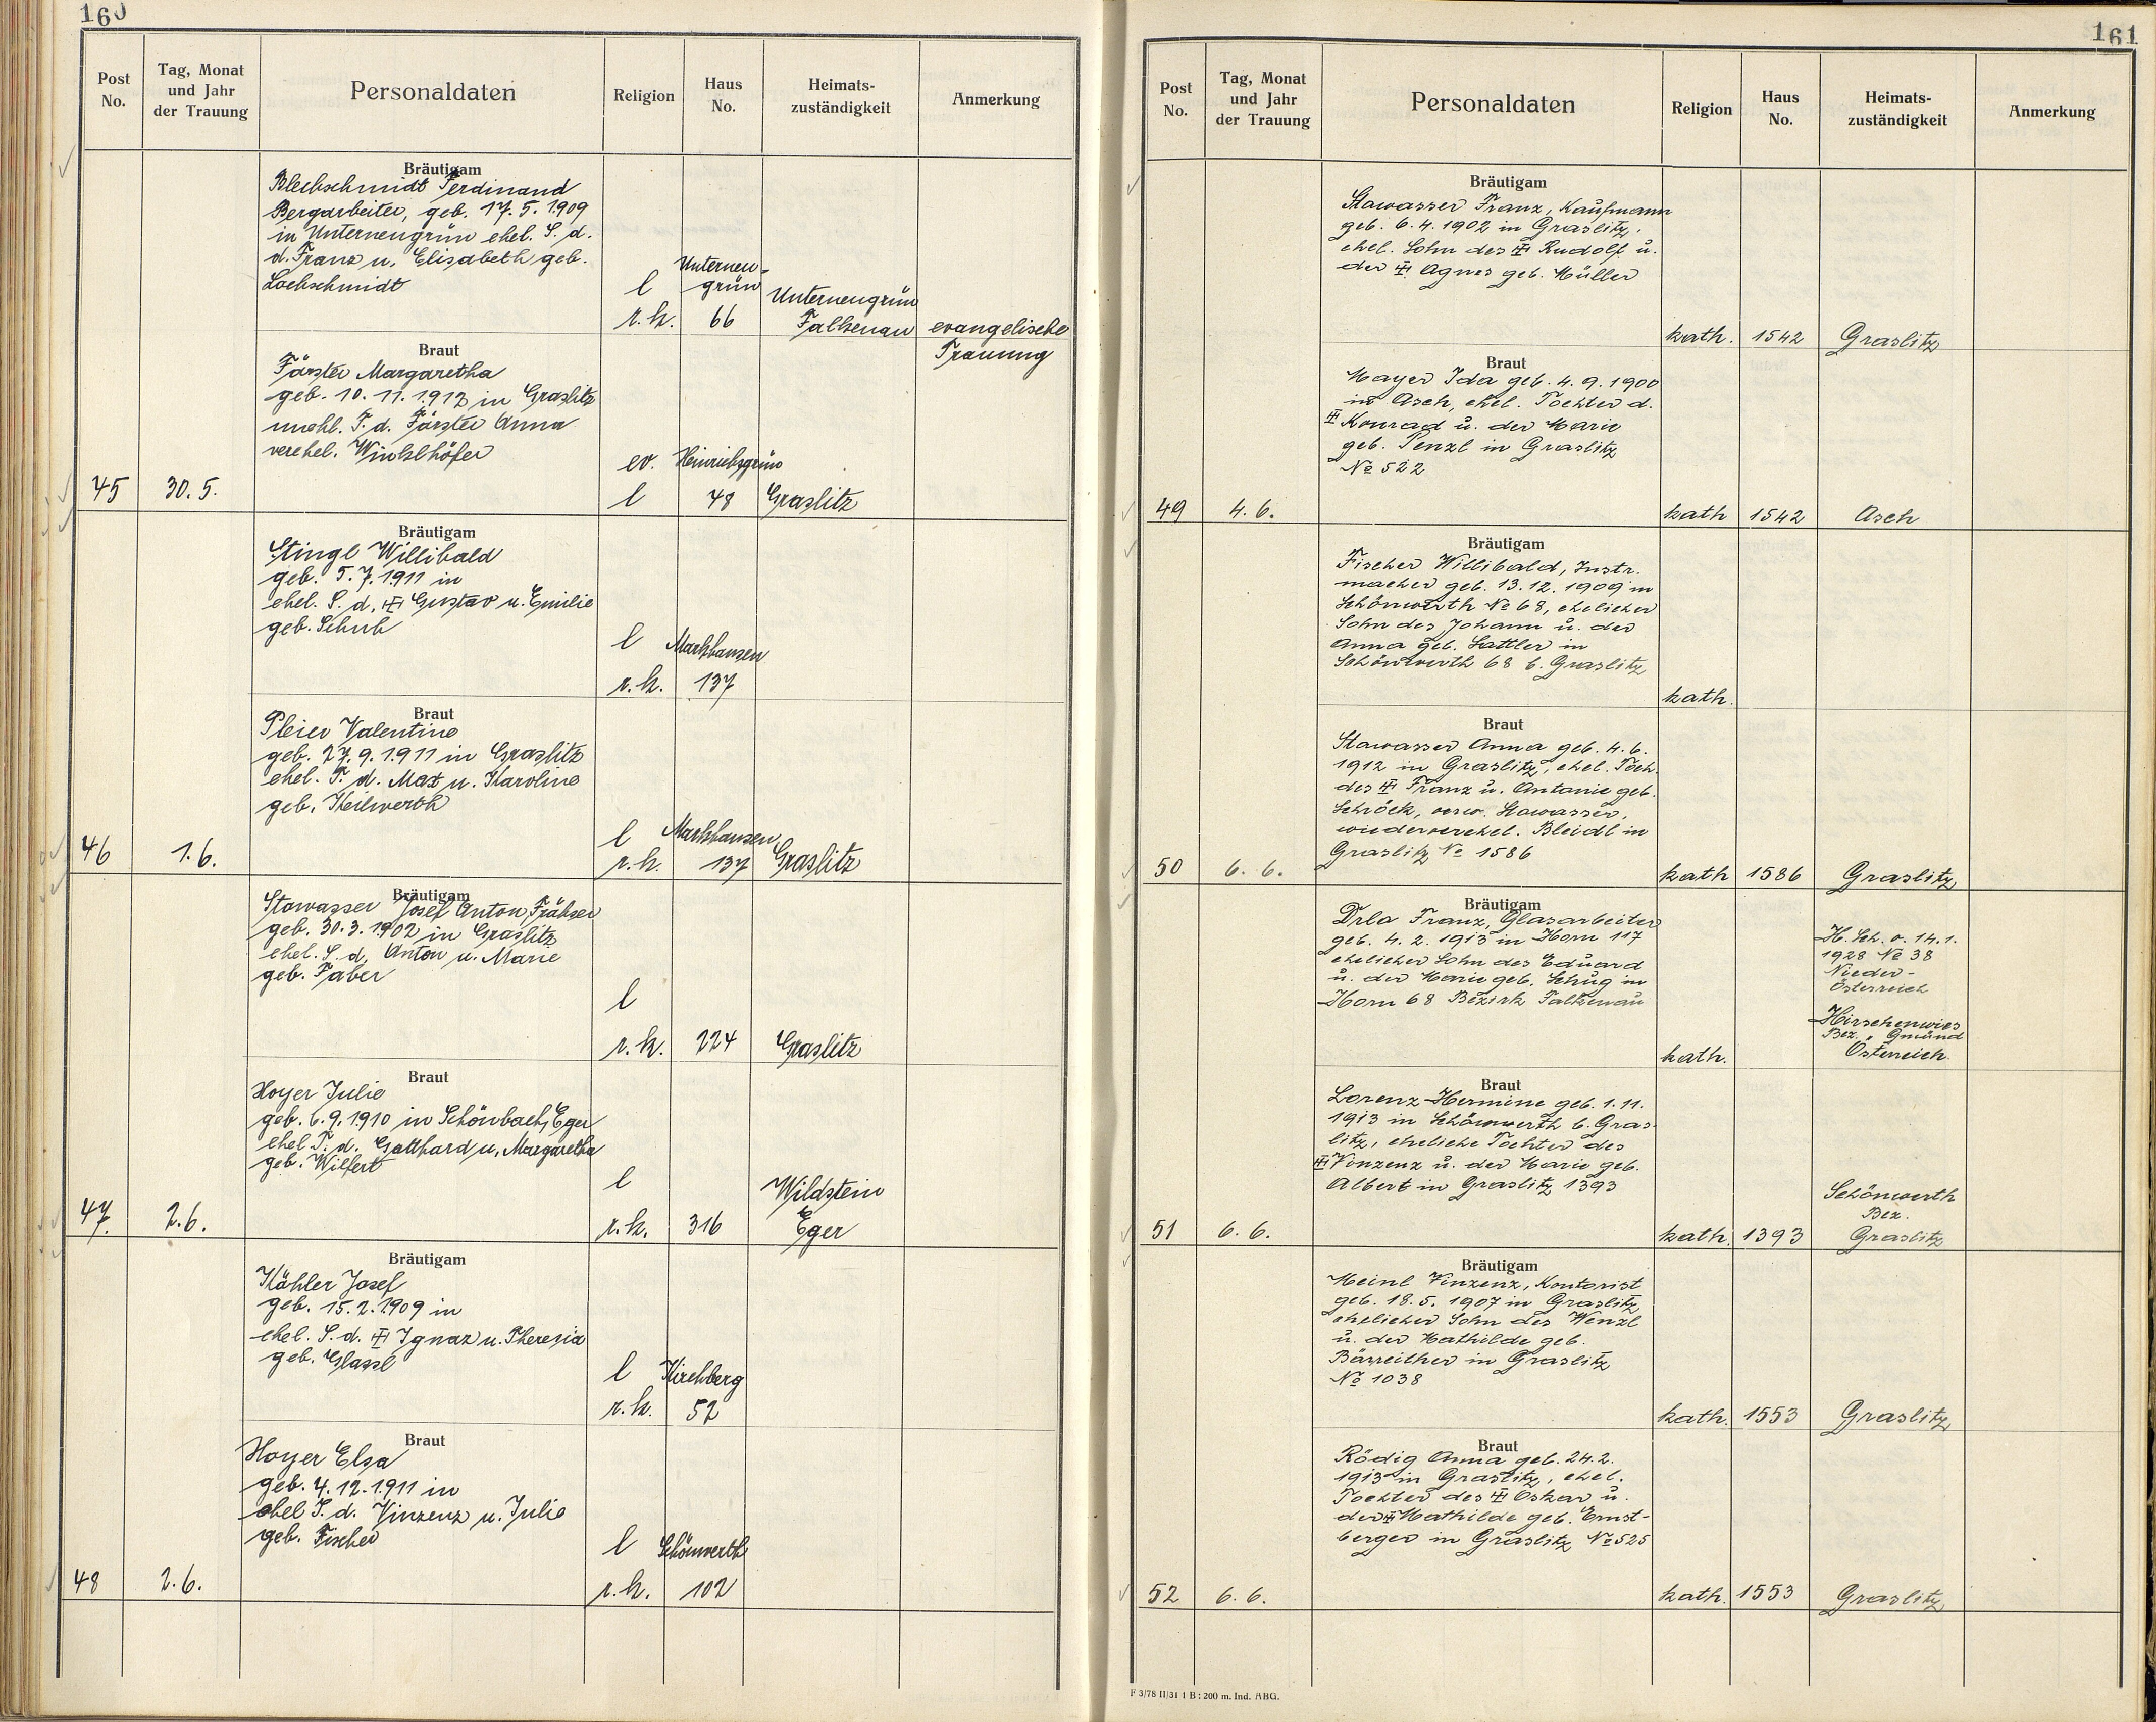 160
Post No.
Tag, Monat und Jahr der Trauung
Personaldaten
Religion
Haus No.
Heimats-zuständigkeit
Anmerkung
Bräutigam
Blechschmidt Ferdinand
Bergarbeiter, geb. 17.5.1909
in Unterneugrün ehel. S. d.
d. Franz u. Elisabeth geb.
Lochschmidt
l
r.k.
Unterneu-
grün
66
Unterneugrün
Falkenau
evangelische
Trauung
Braut
Förster Margaretha
geb. 10.11.1912 in Graslitz
unehl. T. d. Förster Anna
verehel. Winklhöfer
45
30.5.
ev.
l
Heinrichsgrün
48
Graslitz
Bräutigam
Stingl Willibald
geb. 5.7.1911 in
ehel. S. d. Gustav u. Emilie
geb. Schuh
l
r.k.
Markhausen
137
Braut
Pleier Valentine
geb. 27.9.1911 in Graslitz
ehel. T. d. Max u. Karoline
geb. Keilwerth
46
1.6.
l
r.k.
Markhausen
137
Graslitz
Bräutigam
Stowasser Josef Anton, Fräser
geb. 30.3.1902 in Graslitz
ehel. S. d. Anton u. Marie
geb. Faber
l
r.k.
224
Graslitz
Braut
Hoyer Julie
geb. 6.9.1910 in Schönbach, Eger
ehel T. d. Gotthard u. Margaretha
geb. Wilfert
47.
2.6.
l
r.k.
316
Wildstein
Eger
Bräutigam
Köhler Josef
geb. 15.2.1909 in
ehel. S. d. Ignaz u. Theresia
geb. Glassl
l
r.k.
Kirchberg
52
Braut
Hoyer Elsa
geb. 4.12.1911 in
ehel T. d. Vinzenz u. Julie
geb. Fischer
48
2.6.
l
r.k.
Schönwerth
102
161
Post No.
Tag, Monat und Jahr der Trauung
Personaldaten
Religion
Haus No.
Heimats-zuständigkeit
Anmerkung
Bräutigam
Stowasser Franz, Kaufmann
geb. 6.4.1902 in Graslitz,
ehel. Sohn des Rudolf u.
der Agnes geb. Müller
kath.
1542
Graslitz
Braut
Mayer Ida geb. 4.9.1900
in Asch, ehel. Tochter d.
Konrad u. der Marie
geb. Penzl in Graslitz
№ 522
49
4.6.
kath
1542
Asch
Bräutigam
Fischer Willibald, Instr.
macher geb. 13.12.1909 in
Schönwerth № 68, ehelicher
Sohn des Johann u. der
Anna geb. Sattler in
Schönwerth 68 b. Graslitz
kath.
Braut
Stowasser Anna geb. 4.6.
1912 in Graslitz, ehel. Toch.
des Franz u. Antonie geb.
Schröck, verw. Stowasser,
wiederverehel. Bleidl in
Graslitz № 1586
50
6.6.
kath
1586
Graslitz
Bräutigam
Drla Franz, Glasarbeiter
geb. 4.2.1913 in Horn 117
ehelicher Sohn des Eduard
u. der Marie geb. Schug in
Horn 68 Bezirk Falkenau
kath.
H. Sch. v. 14.1.
1928 № 38
Nieder-
Österreich
Hirschenwies
Bez. Gmünd
Österreich.
Braut
Lorenz Hermine geb. 1.11.
1913 in Schönwerth b. Gras-
litz, eheliche Tochter des
Vinzenz u. der Marie geb.
Albert in Graslitz 1393
51
6.6.
kath.
1393
Schönwerth
Bez.
Graslitz
Bräutigam
Meinl Vinzenz, Kontorist
geb. 18.5.1907 in Graslitz
ehelicher Sohn des Wenzl
u. der Mathilde geb.
Bärreither in Graslitz
№ 1038
kath.
1553
Graslitz
Braut
Rödig Anna geb. 24.2.
1913 in Graslitz, ehel.
Tochter des Oskar u.
der Mathilde geb. Ernst-
berger in Graslitz № 525
52
6.6.
kath.
1553
Graslitz
F 3/78 II/31 1 B : 200 m. Ind. ABG.